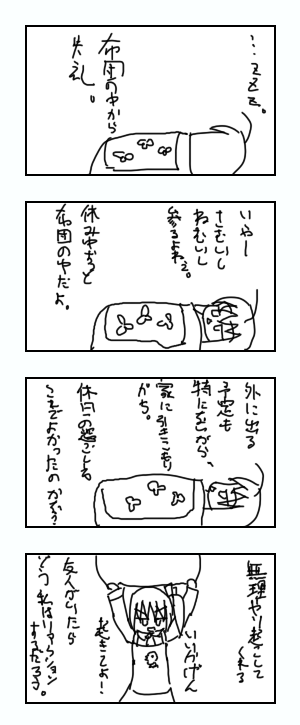 …zzz。
布団の中から
失礼。
いやー
さむいし
ねむいし
参るよねぇ。
休み中ずっと
布団の中だよ。
外に出る
予定も
特にないから、
家に引きこもり
がち。
休日の過ごし方
これでよかったのかな?
無理やり起こして
くれる
いいかげん
起きてよ!
友人がいたら
どう 私はリアクション
するだろう。